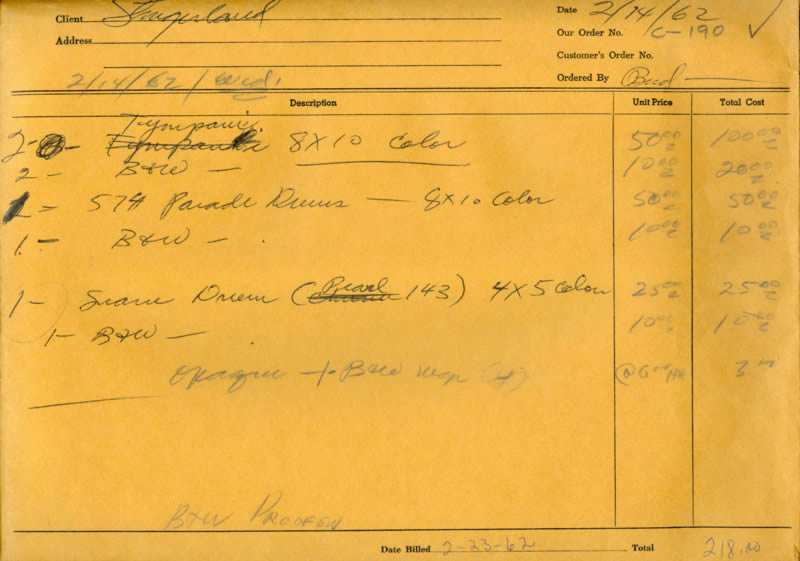 Client Slingerland
Date 2/14/62
Address
Our Order No. C-190
Customer's Order No.
2/14/62/Wed.
Ordered By Bud
Description Unit Price Total Cost
Tympani
2- Tympani 8X10 Color 50 00 100 00
2- B+W - 10 00 20 00
1- Parade Drums - 8X10 Color 50 00 50 00
1- B+W - 10 00 10 00
Pearl
1- Snare Drum ( 143) 4X5 Color 25 00 25 00
1- B+W - 10 00 10 00
Opaque + B+W neg (4) @ 6 /HR 3
B+W PROOFED
Date Billed 2-23-62 Total 218.00